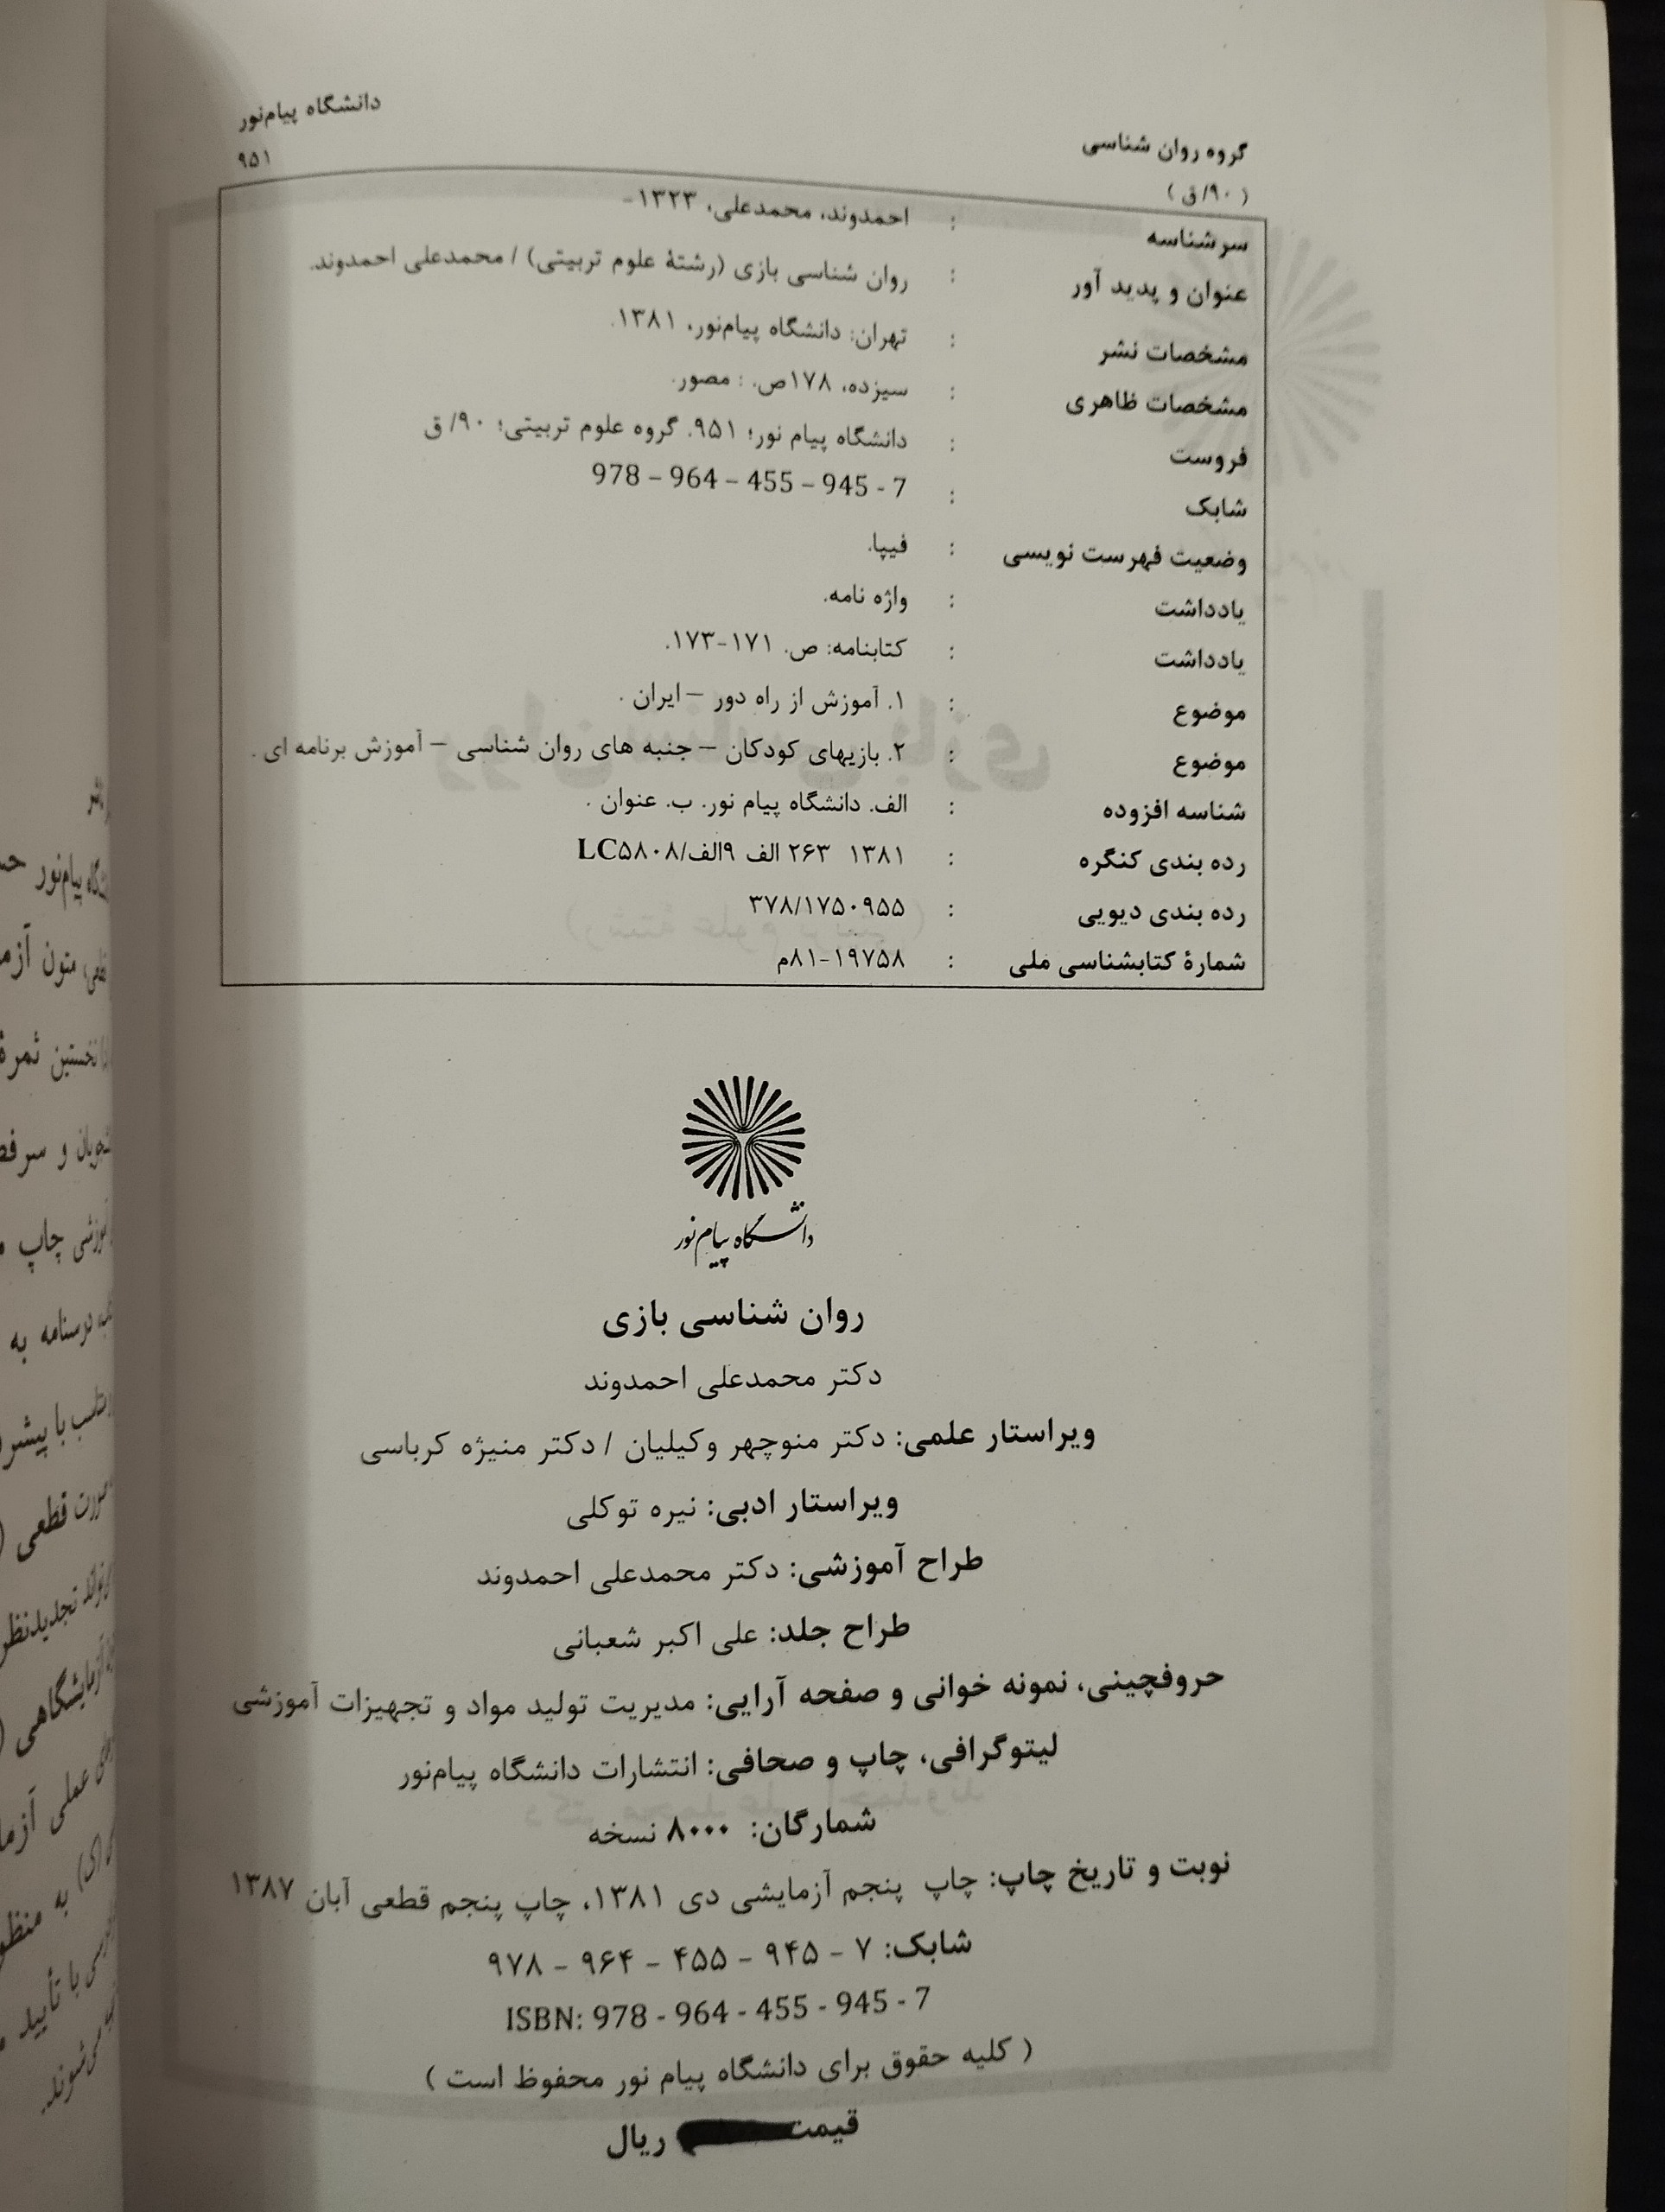 دانشگاه پیام‌نور
۹۵۱
گروه روان شناسی
( ۹۰/ق )
سرشناسه : احمدوند، محمدعلی، ۱۳۲۳-
عنوان و پدید آور : روان شناسی بازی (رشتهٔ علوم تربیتی) / محمدعلی احمدوند.
مشخصات نشر : تهران: دانشگاه پیام‌نور، ۱۳۸۱.
مشخصات ظاهری : سیزده، ۱۷۸ص. : مصور.
فروست : دانشگاه پیام نور؛ ۹۵۱. گروه علوم تربیتی؛ ۹۰/ ق
شابک : 978 – 964 – 455 – 945 - 7
وضعیت فهرست نویسی : فیپا.
یادداشت : واژه نامه.
یادداشت : کتابنامه: ص. ۱۷۱-۱۷۳.
موضوع : ۱. آموزش از راه دور – ایران .
موضوع : ۲. بازیهای کودکان – جنبه های روان شناسی – آموزش برنامه ای .
شناسه افزوده : الف. دانشگاه پیام نور. ب. عنوان .
رده بندی کنگره : ۱۳۸۱ ۲۶۳ الف ۹الف/LC۵۸۰۸
رده بندی دیویی : ۳۷۸/۱۷۵۰۹۵۵
شمارهٔ کتابشناسی ملی : ۸۱-۱۹۷۵۸م
دانشگاه پیام نور
روان شناسی بازی
دکتر محمدعلی احمدوند
ویراستار علمی: دکتر منوچهر وکیلیان / دکتر منیژه کرباسی
ویراستار ادبی: نیره توکلی
طراح آموزشی: دکتر محمدعلی احمدوند
طراح جلد: علی اکبر شعبانی
حروفچینی، نمونه خوانی و صفحه آرایی: مدیریت تولید مواد و تجهیزات آموزشی
لیتوگرافی، چاپ و صحافی: انتشارات دانشگاه پیام‌نور
شمارگان: ۸۰۰۰ نسخه
نوبت و تاریخ چاپ: چاپ پنجم آزمایشی دی ۱۳۸۱، چاپ پنجم قطعی آبان ۱۳۸۷
شابک: ۷ - ۹۴۵ - ۴۵۵ - ۹۶۴ - ۹۷۸
ISBN: 978 - 964 - 455 - 945 - 7
( کلیه حقوق برای دانشگاه پیام نور محفوظ است )
قیمت ریال